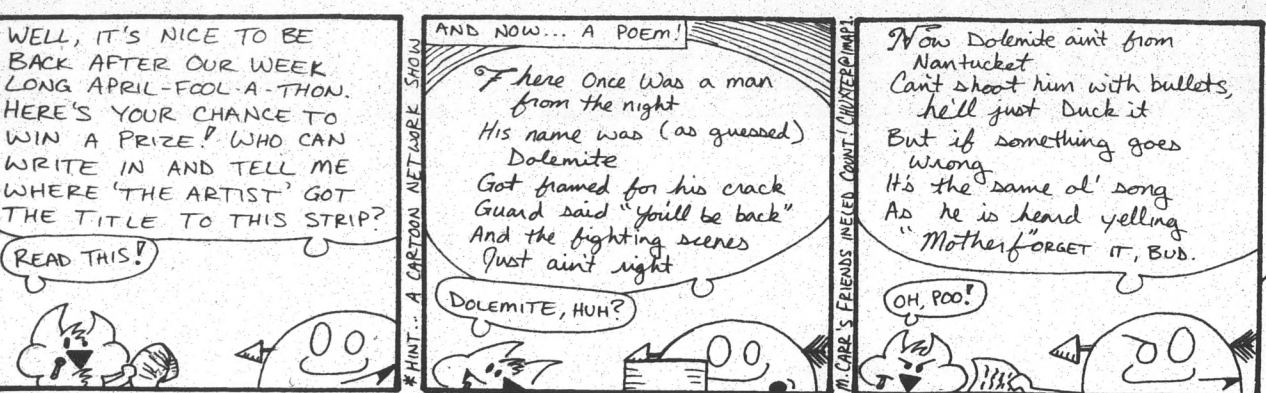 WELL, IT'S NICE TO BE
BACK AFTER OUR WEEK
LONG APRIL-FOOL-A-THON.
HERE'S YOUR CHANCE TO
WIN A PRIZE! WHO CAN
WRITE IN AND TELL ME
WHERE 'THE ARTIST' GOT
THE TITLE TO THIS STRIP?
READ THIS!
*HINT... A CARTOON NETWORK SHOW
AND NOW... A POEM!
There Once Was a man
from the night
His name was (as guessed)
Dolemite
Got framed for his crack
Guard said "you'll be back"
And the fighting scenes
Just ain't right
DOLEMITE, HUH?
M. CARR'S FRIENDS INELED COUNT! CHUXTER@IMAP1.
Now Dolemite ain't from
Nantucket
Can't shoot him with bullets,
he'll just Duck it
But if something goes
wrong
It's the same ol' song
As he is heard yelling
"Motherf"ORGET IT, BUB.
OH, POO!